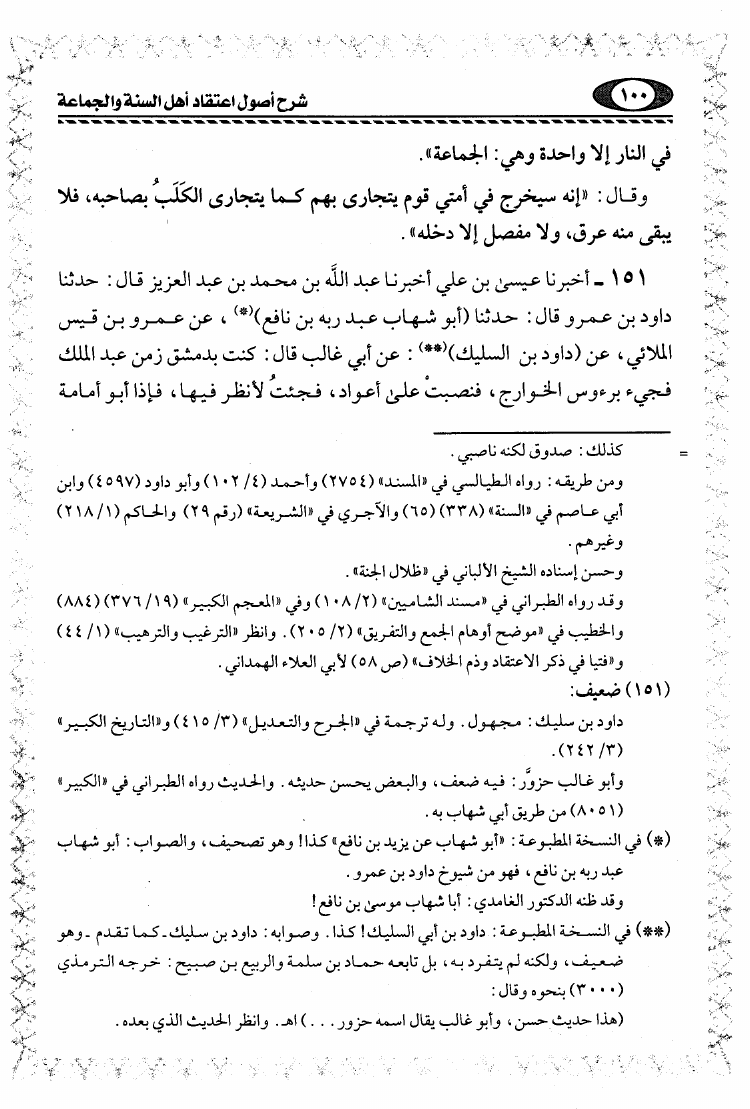 ١٠٠
شرح أصول اعتقاد أهل السنة والجماعة
في النار إلا واحدة وهي: الجماعة».
وقال: «إنه سيخرج في أمتي قوم يتجارى بهم كما يتجارى الكَلَبُ بصاحبه، فلا
يبقى منه عرق، ولا مفصل إلا دخله».
١٥١ ـ أخبرنا عيسى بن علي أخبرنا عبد اللَّه بن محمد بن عبد العزيز قال: حدثنا
داود بن عمرو قال: حدثنا (أبو شهاب عبد ربه بن نافع)(*)، عن عمرو بن قيس
الملائي، عن (داود بن السليك)(**): عن أبي غالب قال: كنت بدمشق زمن عبد الملك
فجيء برءوس الخوارج، فنصبتْ على أعواد، فجئتُ لأنظر فيها، فإذا أبو أمامة
= كذلك: صدوق لكنه ناصبي.
ومن طريقه: رواه الطيالسي في «المسند» (٢٧٥٤) وأحمد (٤/ ١٠٢) وأبو داود (٤٥٩٧) وابن
أبي عاصم في «السنة» (٣٣٨) (٦٥) والآجري في «الشريعة» (رقم ٢٩) والحاكم (١/ ٢١٨)
وغيرهم.
وحسن إسناده الشيخ الألباني في «ظلال الجنة».
وقد رواه الطبراني في «مسند الشاميين» (٢/ ١٠٨) وفي «المعجم الكبير» (١٩/ ٣٧٦) (٨٨٤)
والخطيب في «موضح أوهام الجمع والتفريق» (٢/ ٢٠٥). وانظر «الترغيب والترهيب» (١/ ٤٤)
و«فتيا في ذكر الاعتقاد وذم الخلاف» (ص ٥٨) لأبي العلاء الهمداني.
(١٥١) ضعيف:
داود بن سليك: مجهول. وله ترجمة في «الجرح والتعديل» (٣/ ٤١٥) و«التاريخ الكبير»
(٣/ ٢٤٢).
وأبو غالب حزوَّر: فيه ضعف، والبعض يحسن حديثه. والحديث رواه الطبراني في «الكبير»
(٨٠٥١) من طريق أبي شهاب به.
(*) في النسخة المطبوعة: «أبو شهاب عن يزيد بن نافع» كذا! وهو تصحيف، والصواب: أبو شهاب
عبد ربه بن نافع، فهو من شيوخ داود بن عمرو.
وقد ظنه الدكتور الغامدي: أبا شهاب موسى بن نافع!
(**) في النسخة المطبوعة: داود بن أبي السليك! كذا. وصوابه: داود بن سليك ـ كما تقدم ـ وهو
ضعيف، ولكنه لم يتفرد به، بل تابعه حماد بن سلمة والربيع بن صبيح: خرجه الترمذي
(٣٠٠٠) بنحوه وقال:
(هذا حديث حسن، وأبو غالب يقال اسمه حزور...) اهـ. وانظر الحديث الذي بعده.